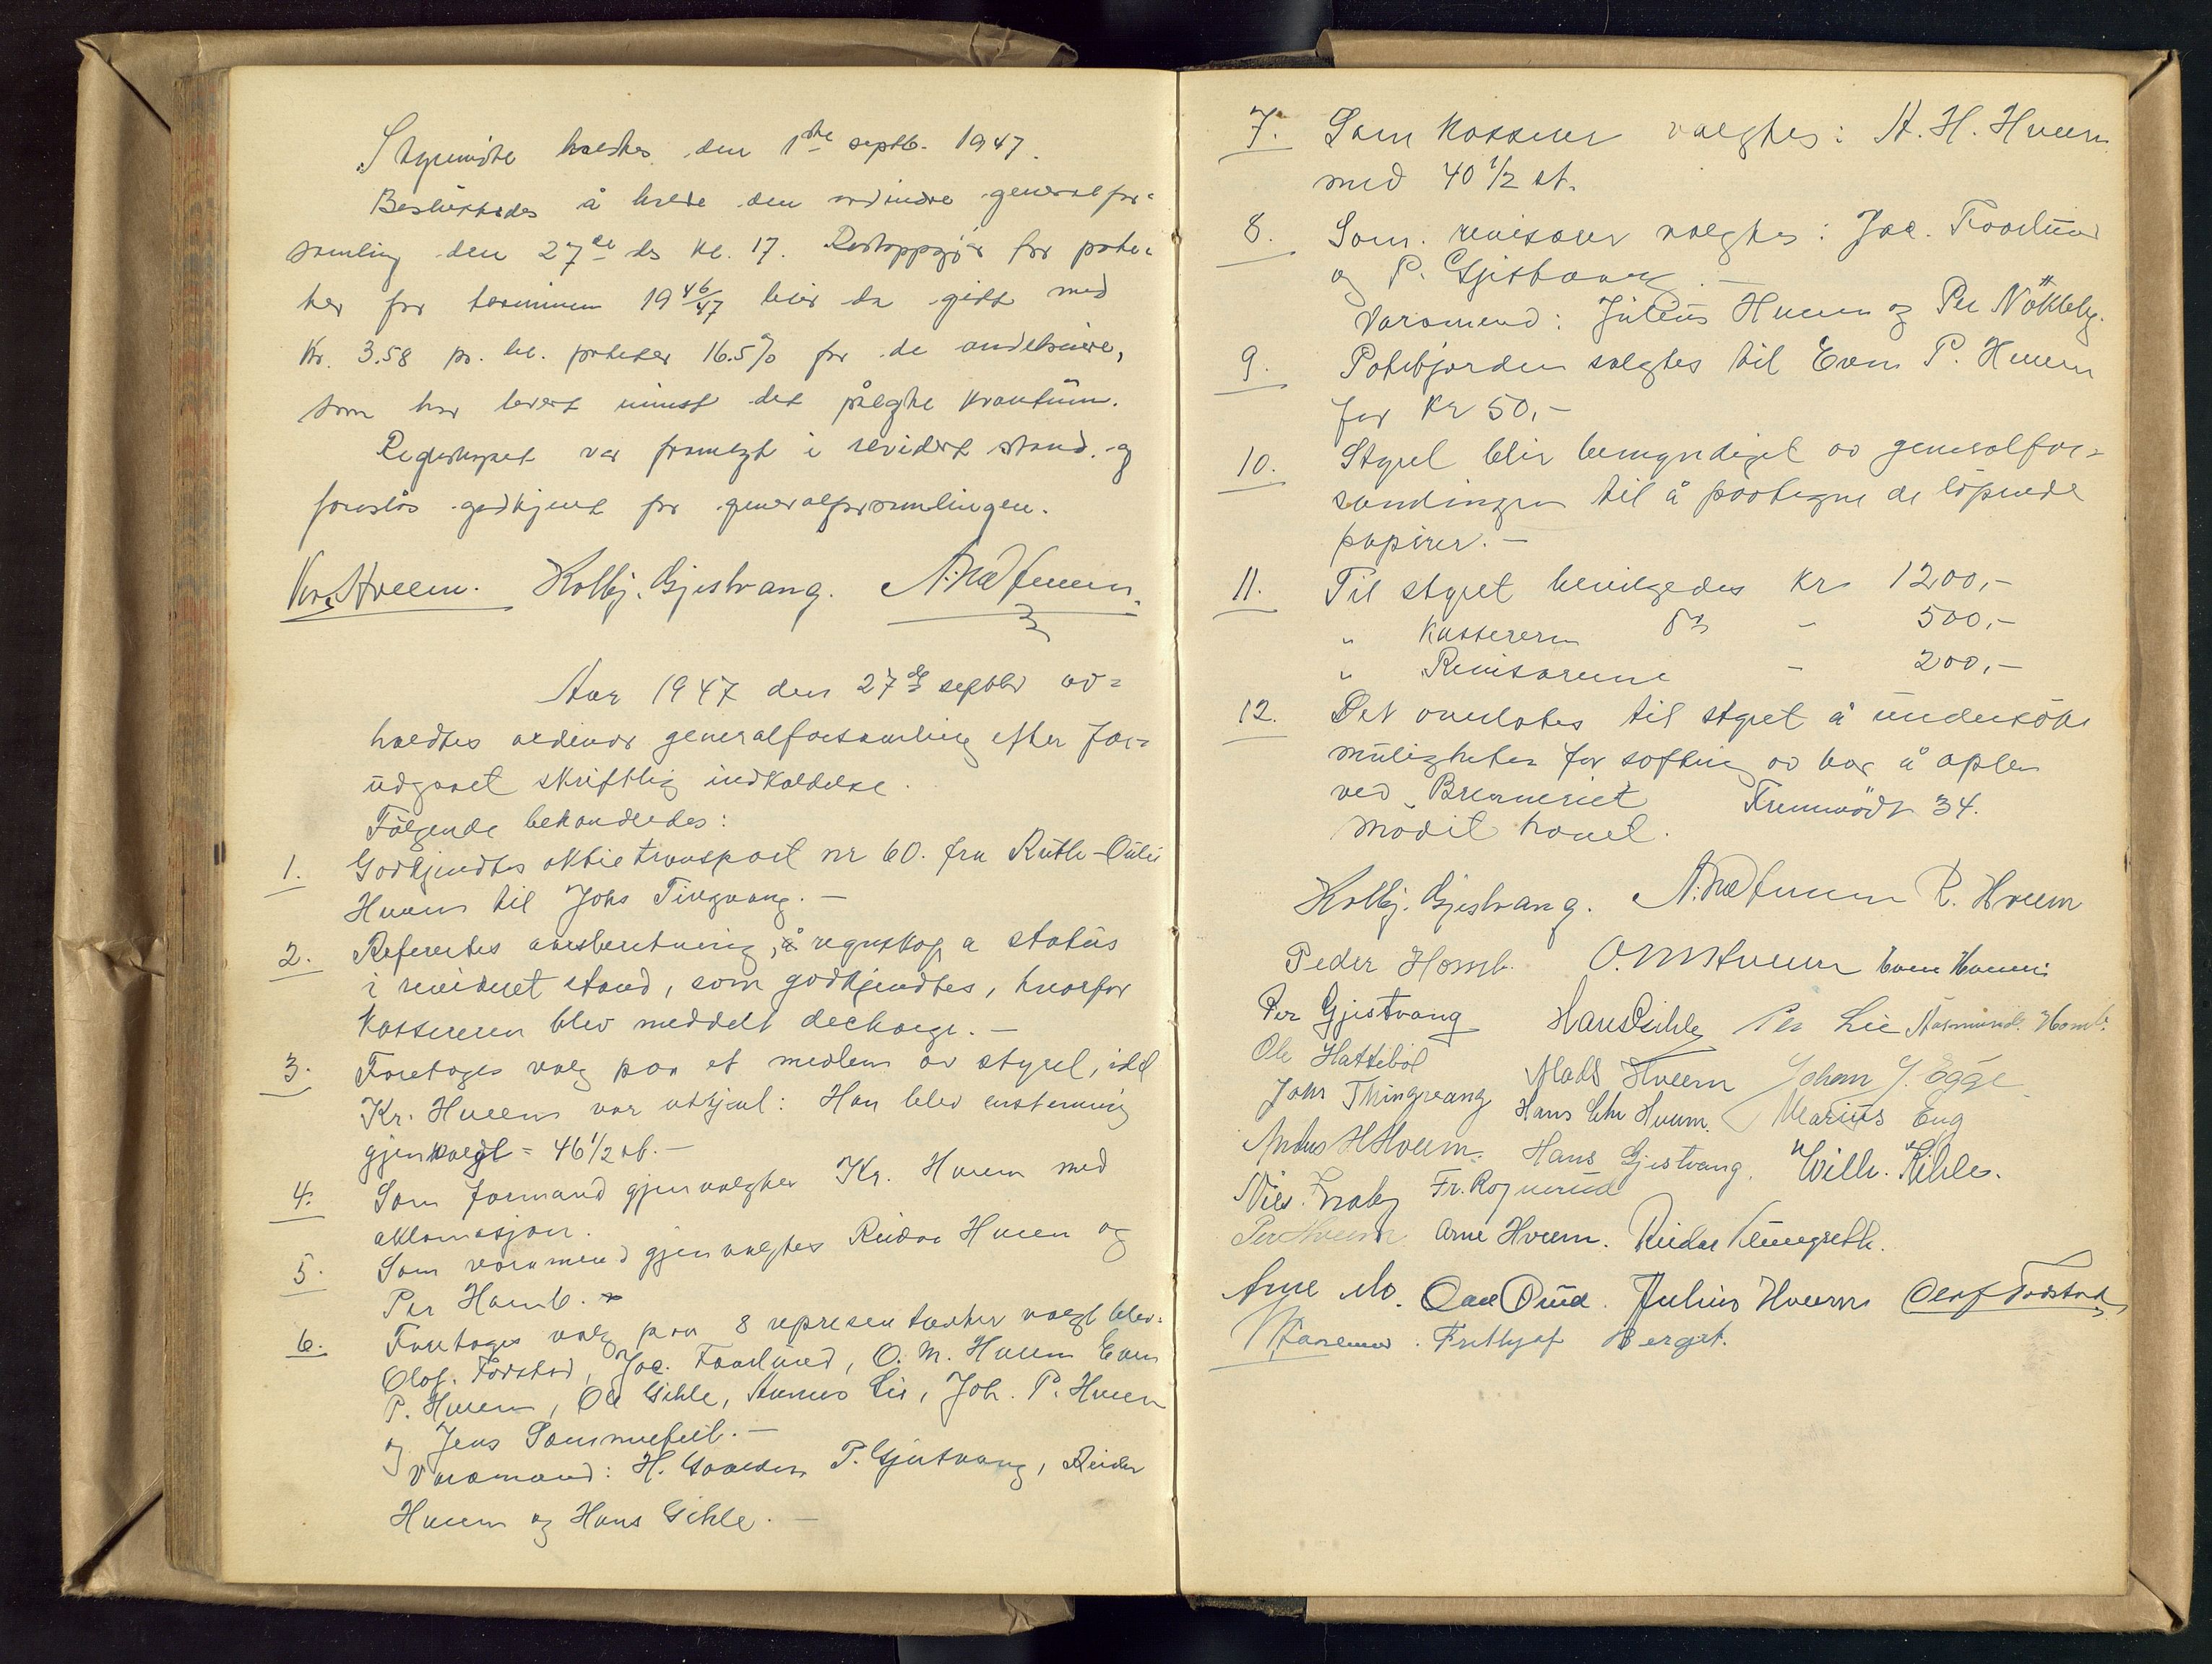 Styremöte holdtes den 1ste septb. 1947.
Besluttedes å holde den ordinære generalfor-
samling den 27de ds kl. 17. Restoppgjör for pote-
ter for terminen 1946/47 blir da gitt med
Kr. 3.58 pr. hl. poteter 16.5% for de andelseiere,
som har levert minst det pålagte kvantum.
Regnskapet var framlagt i revidert stand og
foreslås godkjent for generalforsamlingen.
Kr. Hveem. Kolbj. Gjestvang.
Aar 1947 den 27de septbr av-
holdtes ordinær generalforsamling efter for-
udgaaet skriftlig indkaldelse.
Følgende behandledes:
1. Godkjendtes aktietransport nr 60. fra Ruth-
Hveem til Johs Tingvang. -
2. Refertes aarsberetning, å regnskap a status
i revideret stand, som godkjendtes, hvorfor
Kassereren blev meddelt decharge. -
3. Foretages valg paa et medlem av styret, idet
Kr. Hveem var utgjent: Han blev enstemmig
gjenvalgt = 46 1/2 st. -
4. Som formand gjenvalgtes Kr. Hveem med
aklamasjon.
5. Som varamend gjenvalgtes Reidar Hveem og
Per Homb.
6. Foretages valg paa 8 representanter valgt blev:
Olaf Fodstad, Jac. Faarlund, O. M. Hveem Even
P. Hveem, Ole Gihle, Lie, Joh. P. Hveem
og Jens Sommerfelt. -
Varamænd: H. P. Gjestvang, Reidar
Hveem og Hans Gihle. -
7. Som Kasserer valgtes: A. H. Hveem
med 40 1/2 st.
8. Som revisorer valgtes: Jac. Faarlund
og P. Gjestvang. -
Varamend: Julius Hveem og Per Nökleby.
9. Potetjorden solgtes til Even P. Hveem
for Kr 50,-
10. Styret blir bemyndiget av generalfor-
samlingen til å paategne de löpende
papirer. -
11. Til styret bevilgedes Kr 1200,-
" Kassereren do - 500,-
" Revisorene - 200,-
12. Det overlates til styret å undersöke
muligheten for safting av bær å æpler
ved Brenneriet Fremmödt 34.
Mödet hævet.
Kolbj. Gjestvang. R. Hveem
Peder Homb. O. M. Hveem Even Hveem
Per Gjestvang Hans Gihle Per Lie Aasmund Homb.
Ole Hatteböl Mads Hveem Johan J. Ögge
Johs Thingvang Hans Chr Hveem. Marius Eng
Anders H Hveem. Hans Gjestvang. Wilh. Kihle.
Nils Fr. Rognerud
Per Hveem Arne Hveem. Reidar
Arne Mo. Julius Hveem Olaf Fodstad
Frithjof Berget.